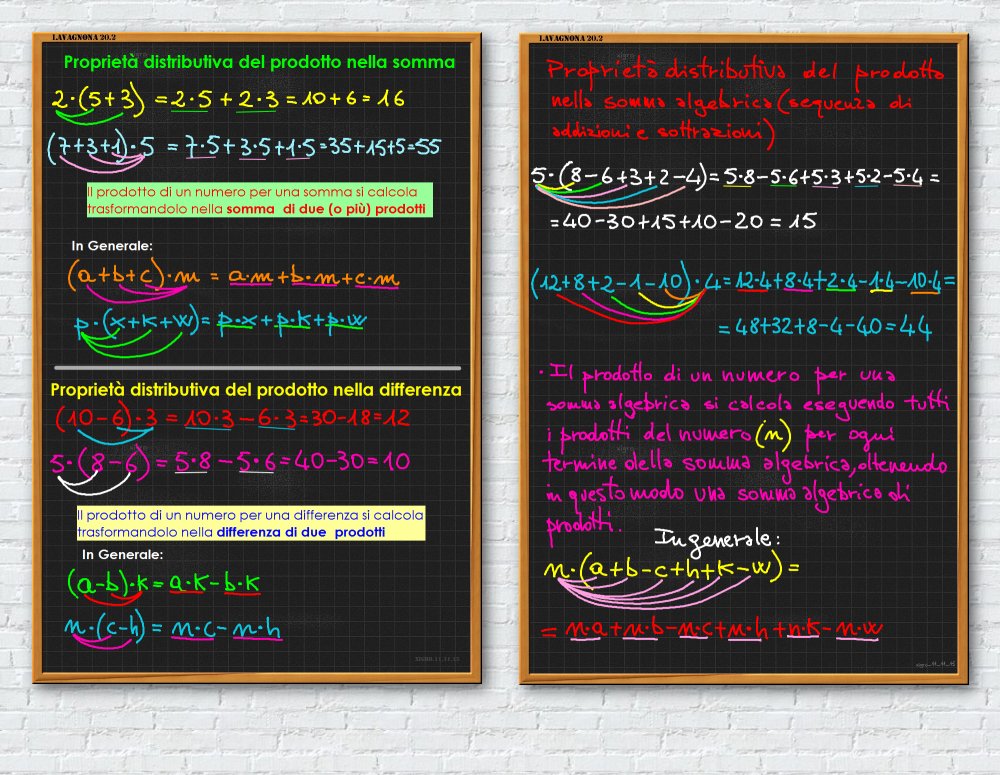 LAVAGNONA 20.2
Proprietà distributiva del prodotto nella somma
2·(5+3) = 2·5 + 2·3 = 10+6 = 16
(7+3+1)·5 = 7·5+3·5+1·5=35+15+5=55
Il prodotto di un numero per una somma si calcola
trasformandolo nella somma di due (o più) prodotti
In Generale:
(a+b+c)·m = a·m+b·m+c·m
p·(x+k+w)= p·x+p·k+p·w
Proprietà distributiva del prodotto nella differenza
(10-6)·3 = 10·3-6·3=30-18=12
5·(8-6)= 5·8-5·6=40-30=10
Il prodotto di un numero per una differenza si calcola
trasformandolo nella differenza di due prodotti
In Generale:
(a-b)·k=a·k-b·k
n·(c-h)= n·c-n·h
LAVAGNONA 20.2
Proprietà distributiva del prodotto
nella somma algebrica (sequenza di
addizioni e sottrazioni)
5·(8-6+3+2-4)=5·8-5·6+5·3+5·2-5·4=
=40-30+15+10-20=15
(12+8+2-1-10)·4=12·4+8·4+2·4-1·4-10·4=
=48+32+8-4-40=44
· Il prodotto di un numero per una
somma algebrica si calcola eseguendo tutti
i prodotti del numero (n) per ogni
termine della somma algebrica, ottenendo
in questo modo una somma algebrica di
prodotti.
In generale:
n·(a+b-c+h+k-w)=
= n·a+n·b-n·c+n·h+n·k-n·w